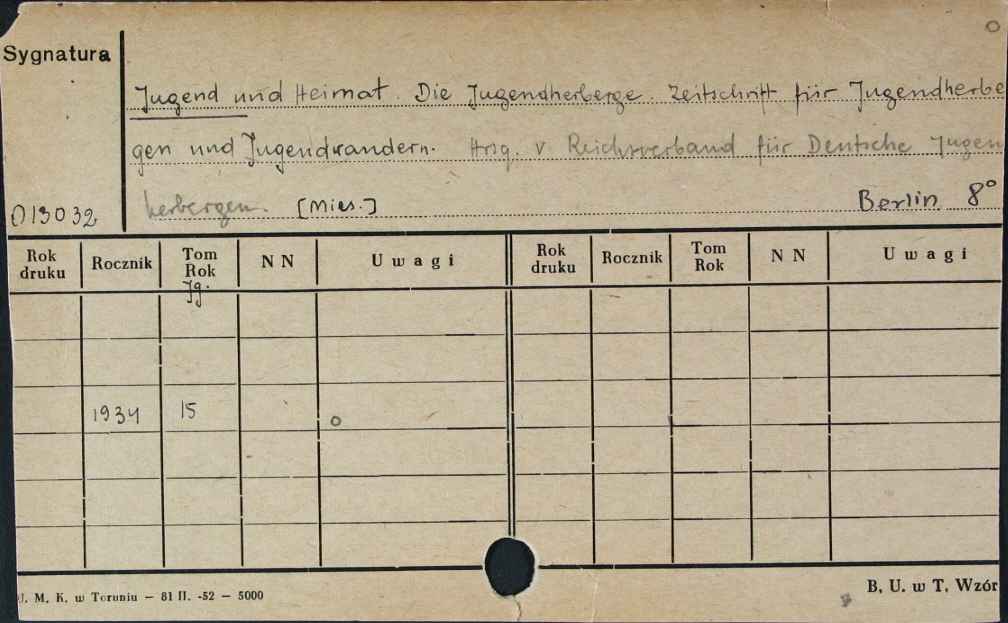 Sygnatura
Jugend und Heimat. Die Jugendherberge. Zeitschrift für Jugendherbe
gen und Jugendwandern. Hrsg. v. Reichsverband für Deutsche Jugen
herbergen. [Mies.] Berlin 8°
013032
Rok druku Rocznik Tom Rok NN Uwagi Rok druku Rocznik Tom Rok NN Uwagi
Jg.
1934 15 o
U. M. K. w Toruniu — 81 II. -52 — 5000
B. U. w T. Wzór